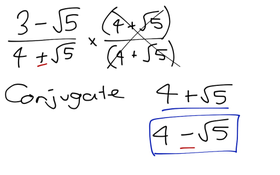 3 - √5 / 4 + √5 × (4 + √5) / (4 + √5)
Conjugate 4 + √5
4 - √5